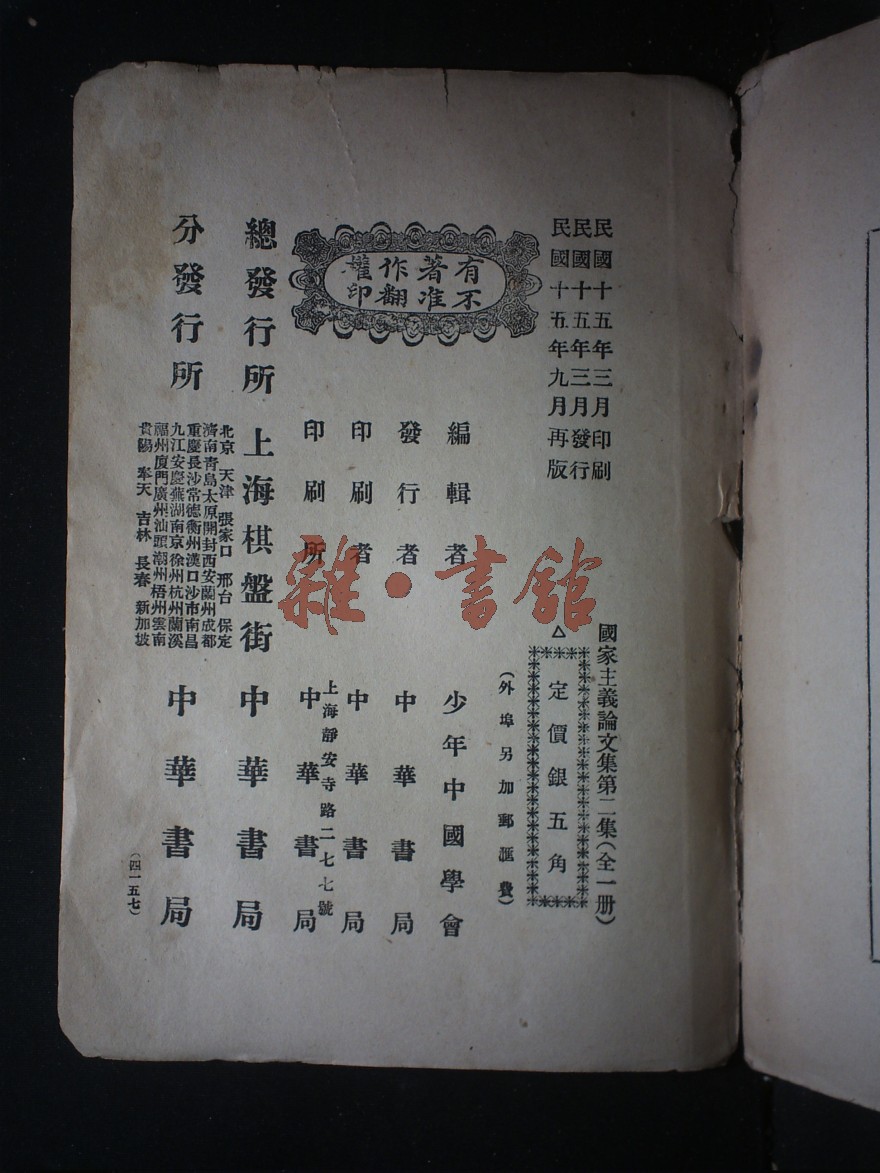 民國十五年三月印刷
民國十五年三月發行
民國十五年九月再版
國家主義論文集第二集(全一册)
△
定價銀五角
(外埠另加郵滙費)
有著作權
不准翻印
編輯者 少年中國學會
發行者 中華書局
印刷者 中華書局
上海靜安寺路二七七號
印刷所 中華書局
總發行所 上海棋盤街 中華書局
分發行所
北京 天津 張家口 邢台 保定
濟南青島太原開封西安蘭州成都
重慶長沙常德衡州漢口沙市南昌
九江安慶蕪湖南京徐州杭州蘭溪
福州廈門廣州汕頭潮州梧州雲南
貴陽 奉天 吉林 長春 新加坡
中華書局
(四一五七)
雜·書館